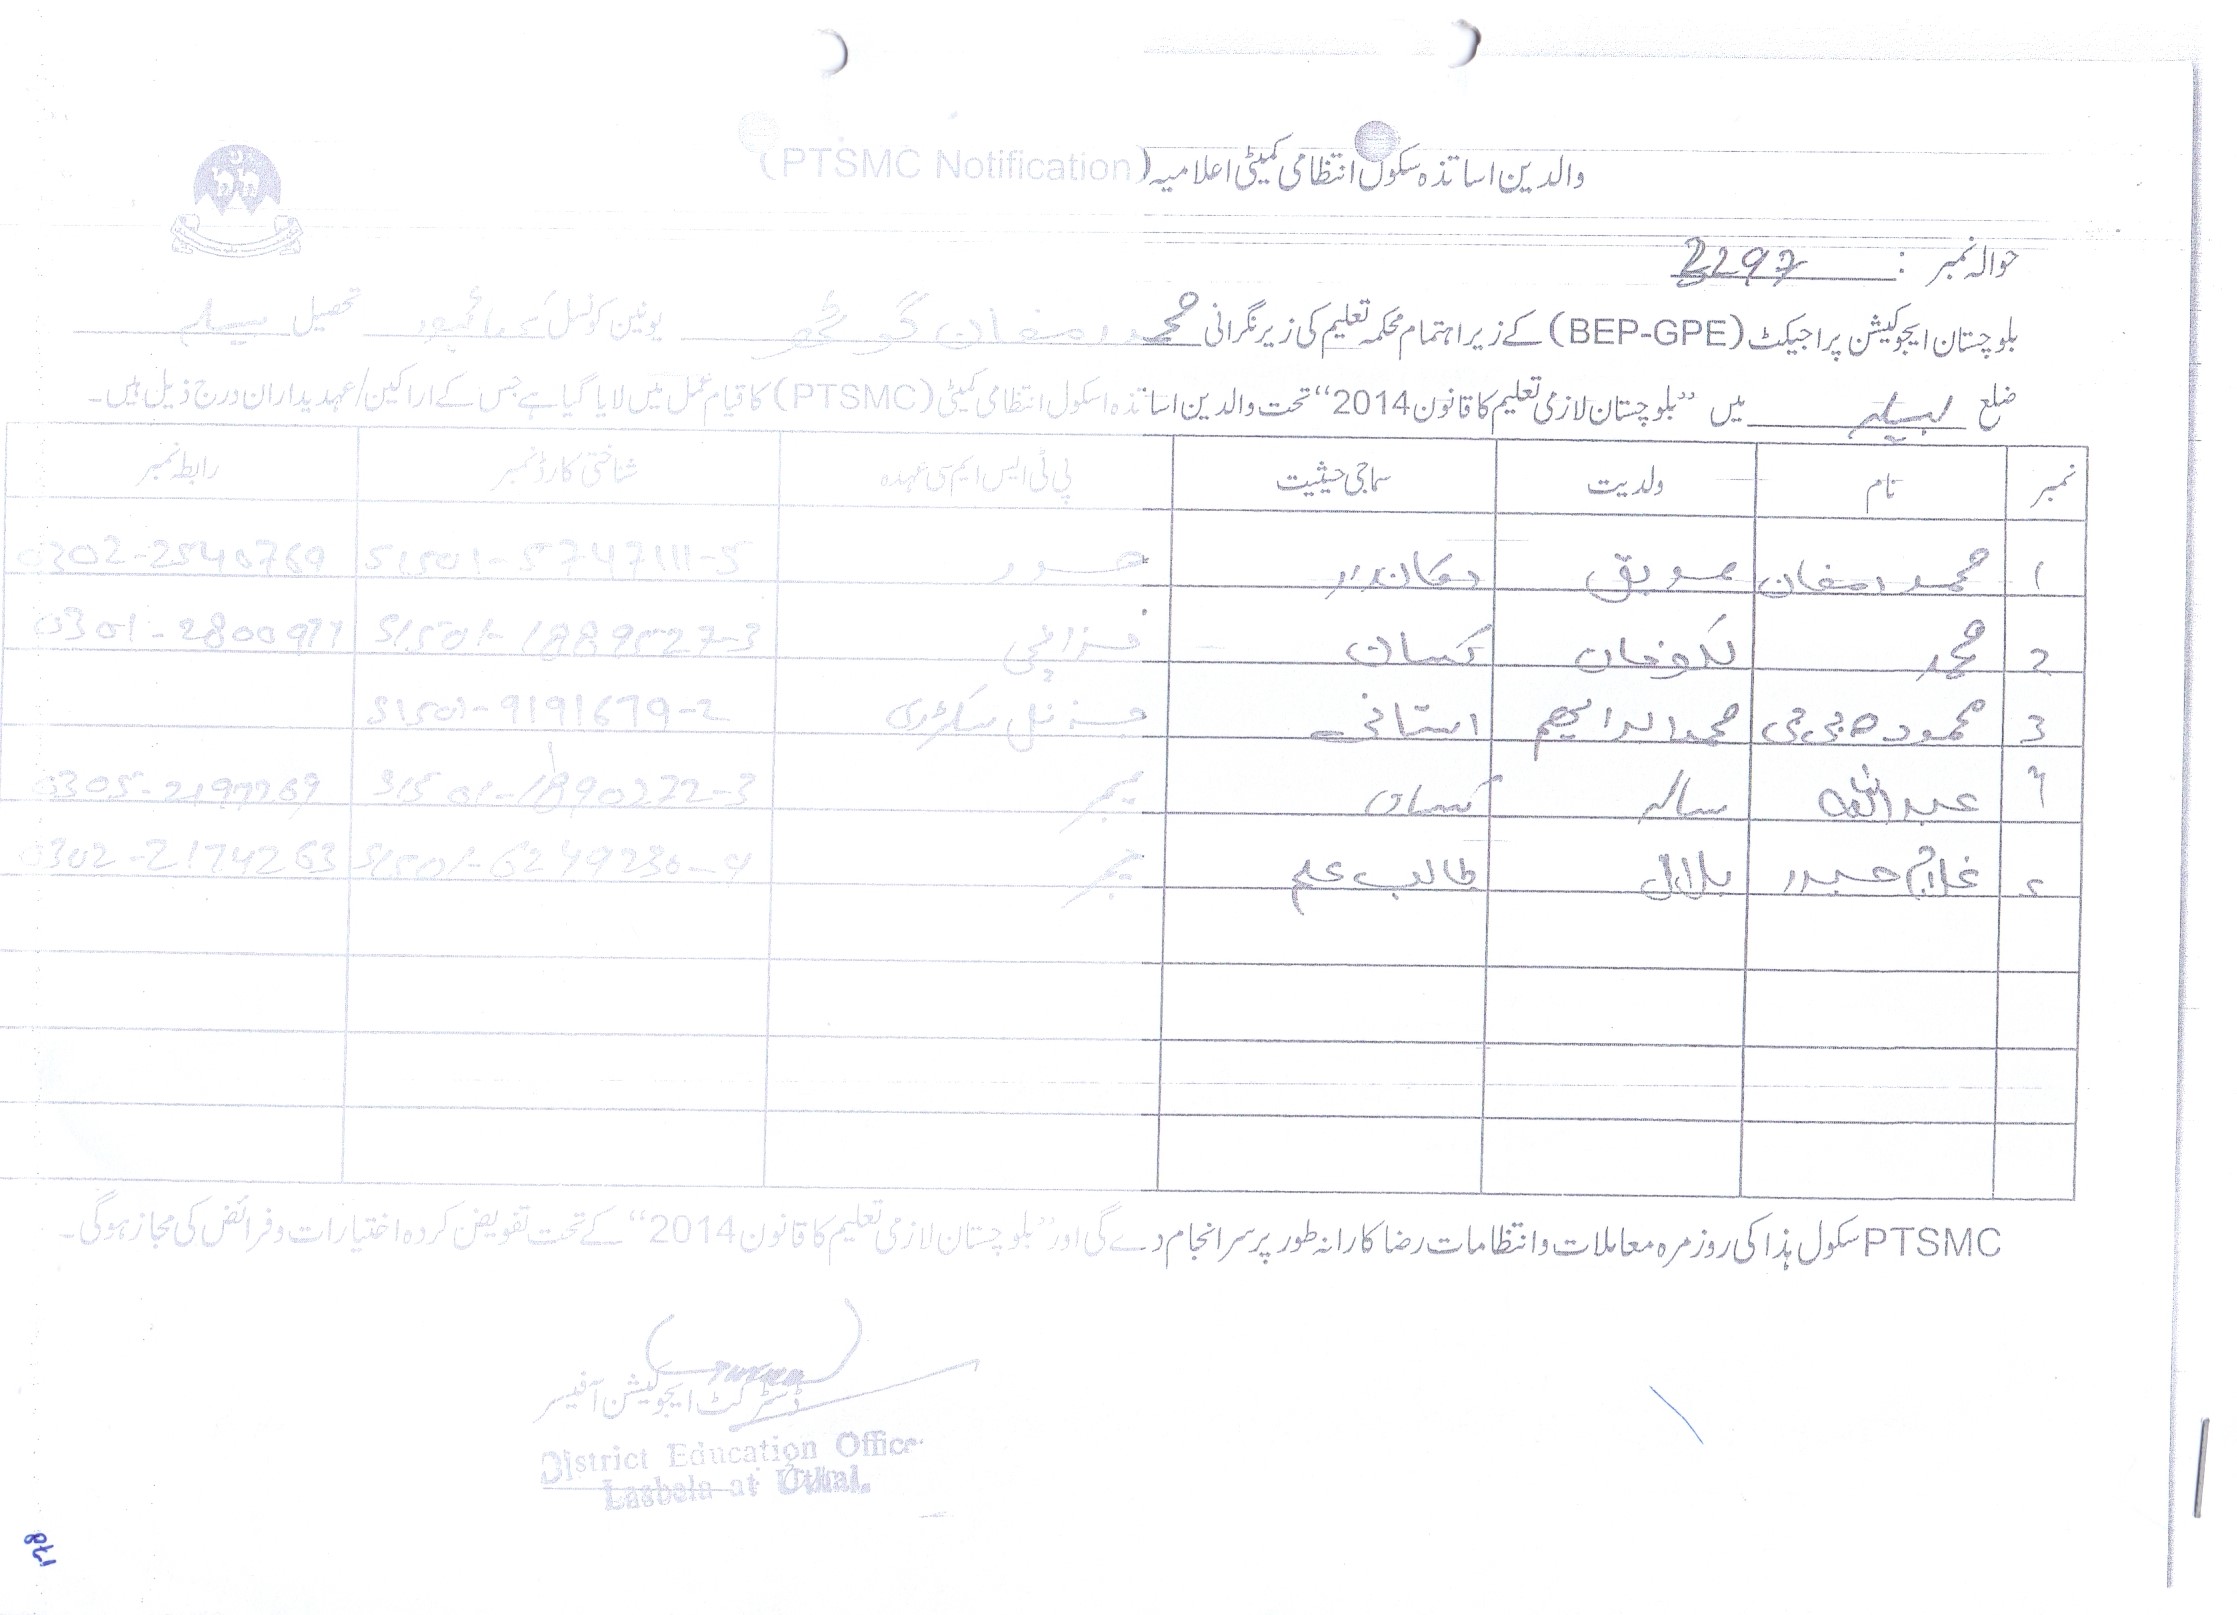 والدین اساتذہ سکول انتظامی کمیٹی اعلامیہ (PTSMC Notification)
حوالہ نمبر : 2297
بلوچستان ایجوکیشن پراجیکٹ (BEP-GPE) کے زیر اہتمام محکمہ تعلیم کی زیر نگرانی محمد رمضان گوٹھ یونین کونسل تحصیل بیلہ
ضلع لسبیلہ میں "بلوچستان لازمی تعلیم کا قانون 2014" تحت والدین اساتذہ اسکول انتظامی کمیٹی (PTSMC) کا قیام عمل میں لایا گیا ہے جس کے اراکین/عہدیداران درج ذیل ہیں۔
نمبر نام ولدیت سماجی حیثیت پی ٹی ایس ایم سی عہدہ شناختی کارڈ نمبر رابطہ نمبر
1 محمد رمضان صدیق دکاندار صدر 51501-5747111-5 0302-2540769
2 محمد لکو خان کسان خزانچی 51501-1889527-3
3 محمودہ بی بی محمد ابراہیم استانی جنرل سکرٹری 51501-9191679-2
4 عبداللہ کسان ممبر 51501-1890272-3 0305-2197269
5 غلام حیدر بلال طالب علم ممبر 51501-6249230-4 0302-2174263
PTSMC سکول ہذا کی روزمرہ معاملات و انتظامات رضا کارانہ طور پر سر انجام دے گی اور "بلوچستان لازمی تعلیم کا قانون 2014" کے تحت تفویض کردہ اختیارات و فرائض کی مجاز ہو گی۔
ڈسٹرکٹ ایجوکیشن آفیسر
District Education Office
Lasbela at Uthal.